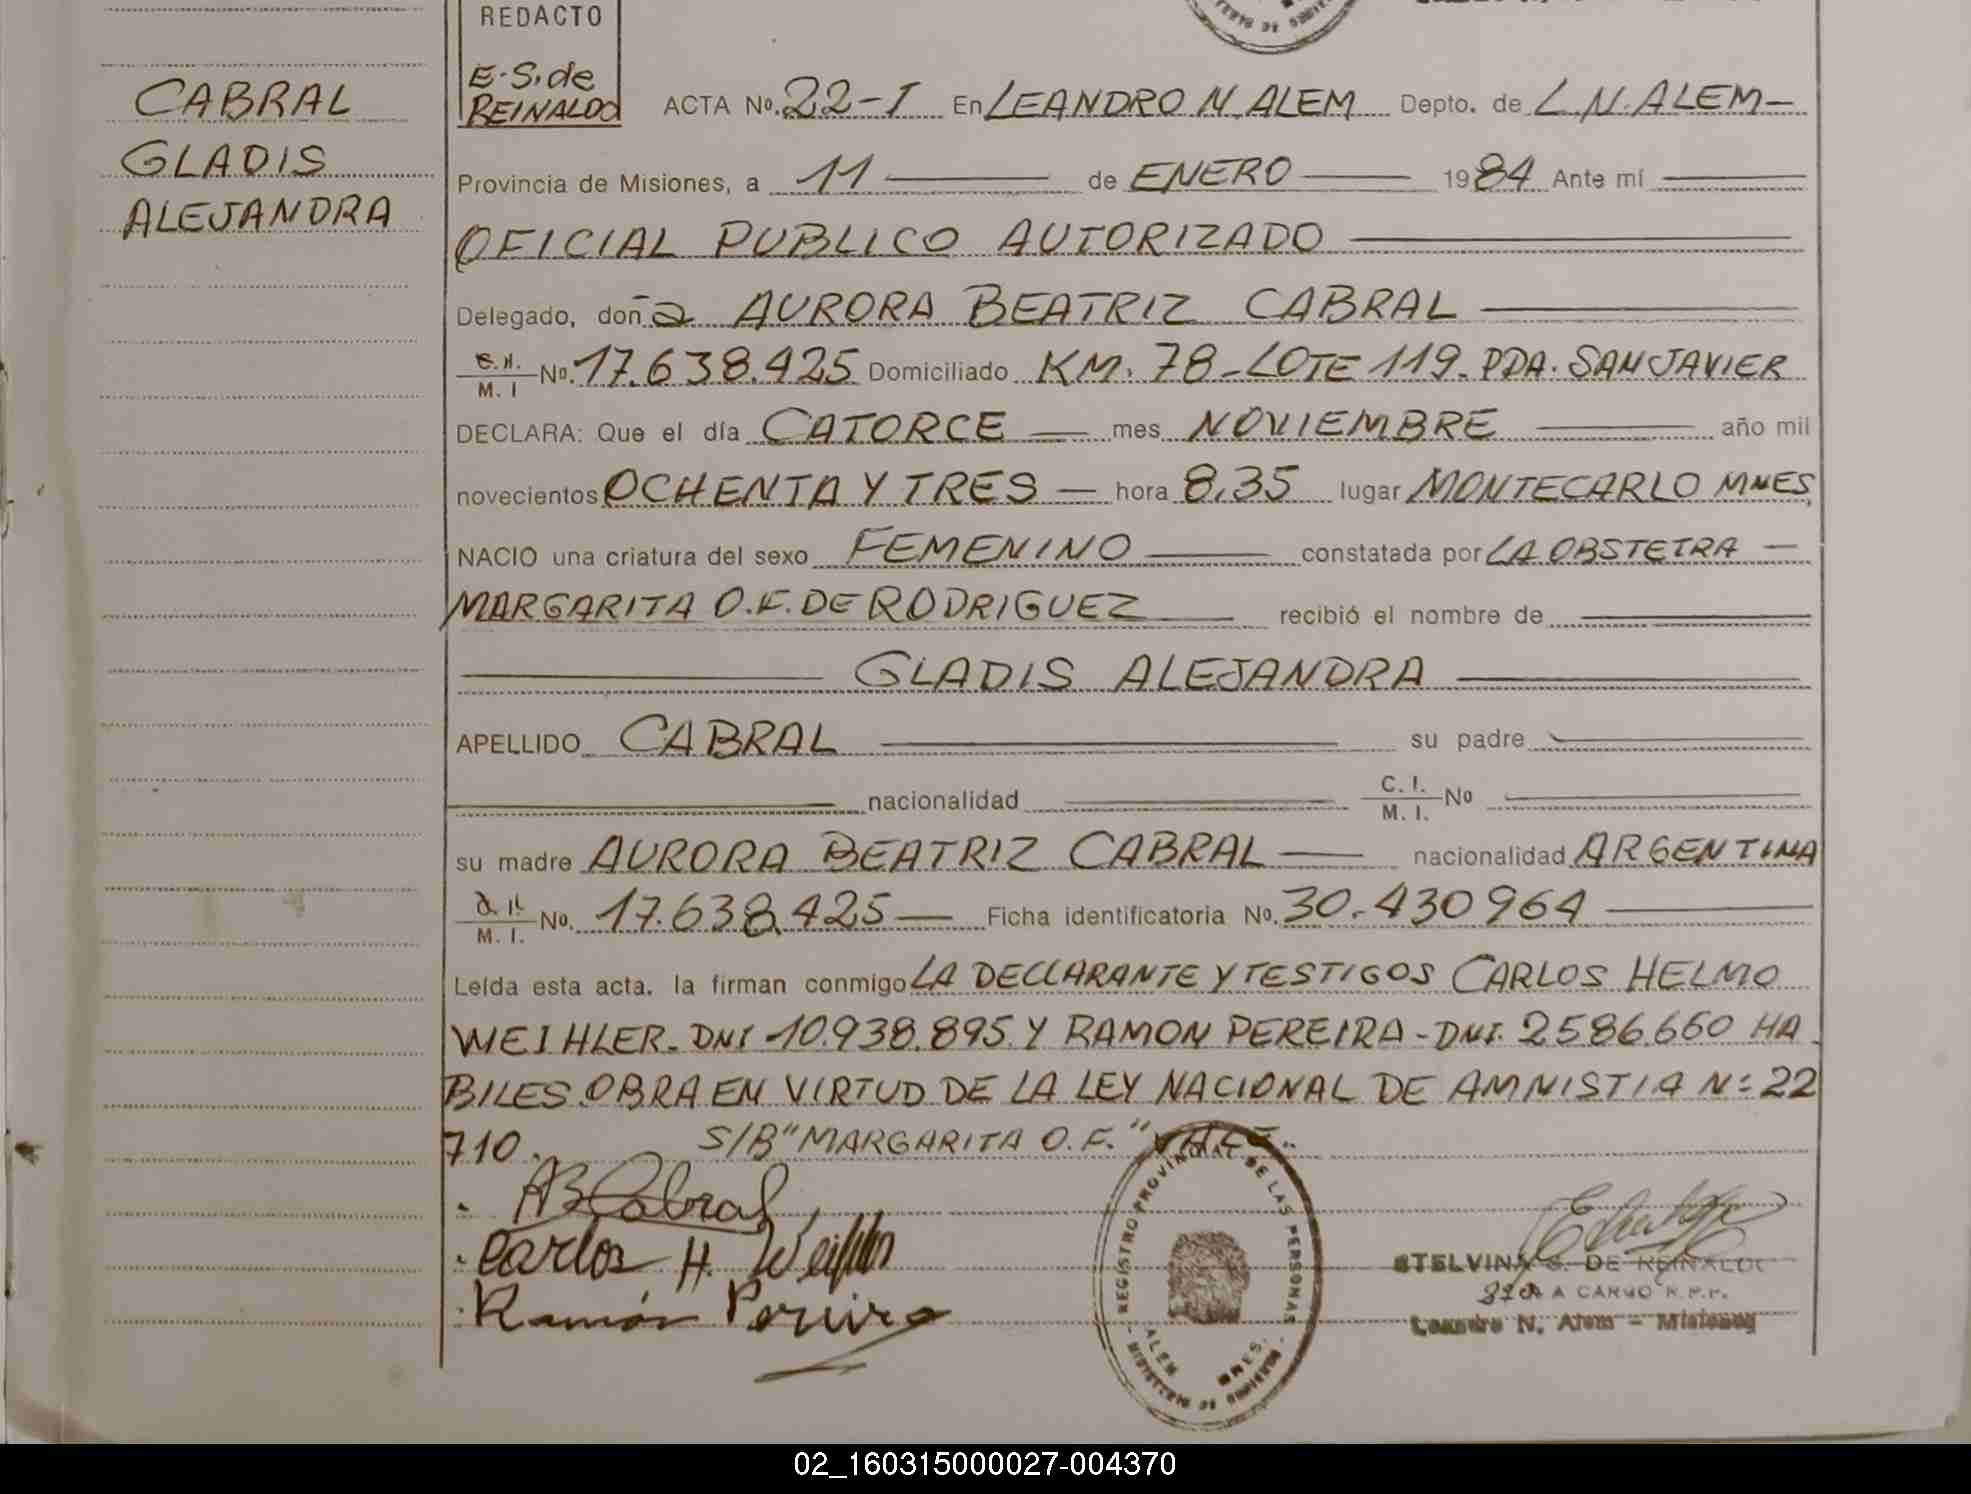 CABRAL
GLADIS
ALEJANDRA
REDACTO
E.S. de
REINALDO
ACTA Nº. 22-I En LEANDRO N. ALEM Depto. de L.N. ALEM
Provincia de Misiones, a 11 de ENERO 1984 Ante mí
OFICIAL PUBLICO AUTORIZADO
Delegado, doña AURORA BEATRIZ CABRAL
M. I Nº. 17.638.425 Domiciliado KM. 78 - LOTE 119 - PDA. SAN JAVIER
DECLARA: Que el día CATORCE mes NOVIEMBRE año mil
novecientos OCHENTA Y TRES hora 8,35 lugar MONTECARLO MNES,
NACIO una criatura del sexo FEMENINO constatada por LA OBSTETRA
MARGARITA O.F. DE RODRIGUEZ recibió el nombre de
GLADIS ALEJANDRA
APELLIDO CABRAL su padre
nacionalidad C. I. M. I. Nº
su madre AURORA BEATRIZ CABRAL nacionalidad ARGENTINA
M. I. Nº. 17.638.425 Ficha identificatoria Nº. 30.430964
Leída esta acta, la firman conmigo LA DECLARANTE Y TESTIGOS CARLOS HELMO
WEIHLER - DNI 10.938.895. Y RAMON PEREIRA - DNI. 2586.660 HA
BILES. OBRA EN VIRTUD DE LA LEY NACIONAL DE AMNISTIA Nº 22
710. S/B "MARGARITA O.F." VALE.
AB Cabral
Carlos H. Weihler
Ramón Pereira
REGISTRO PROVINCIAL DE LAS PERSONAS
ALEM MNES.
MINISTERIO DE GOBIERNO
STELVINA S. DE REINALDO
A CARGO R.P.P.
Leandro N. Alem - Misiones
02_160315000027-004370